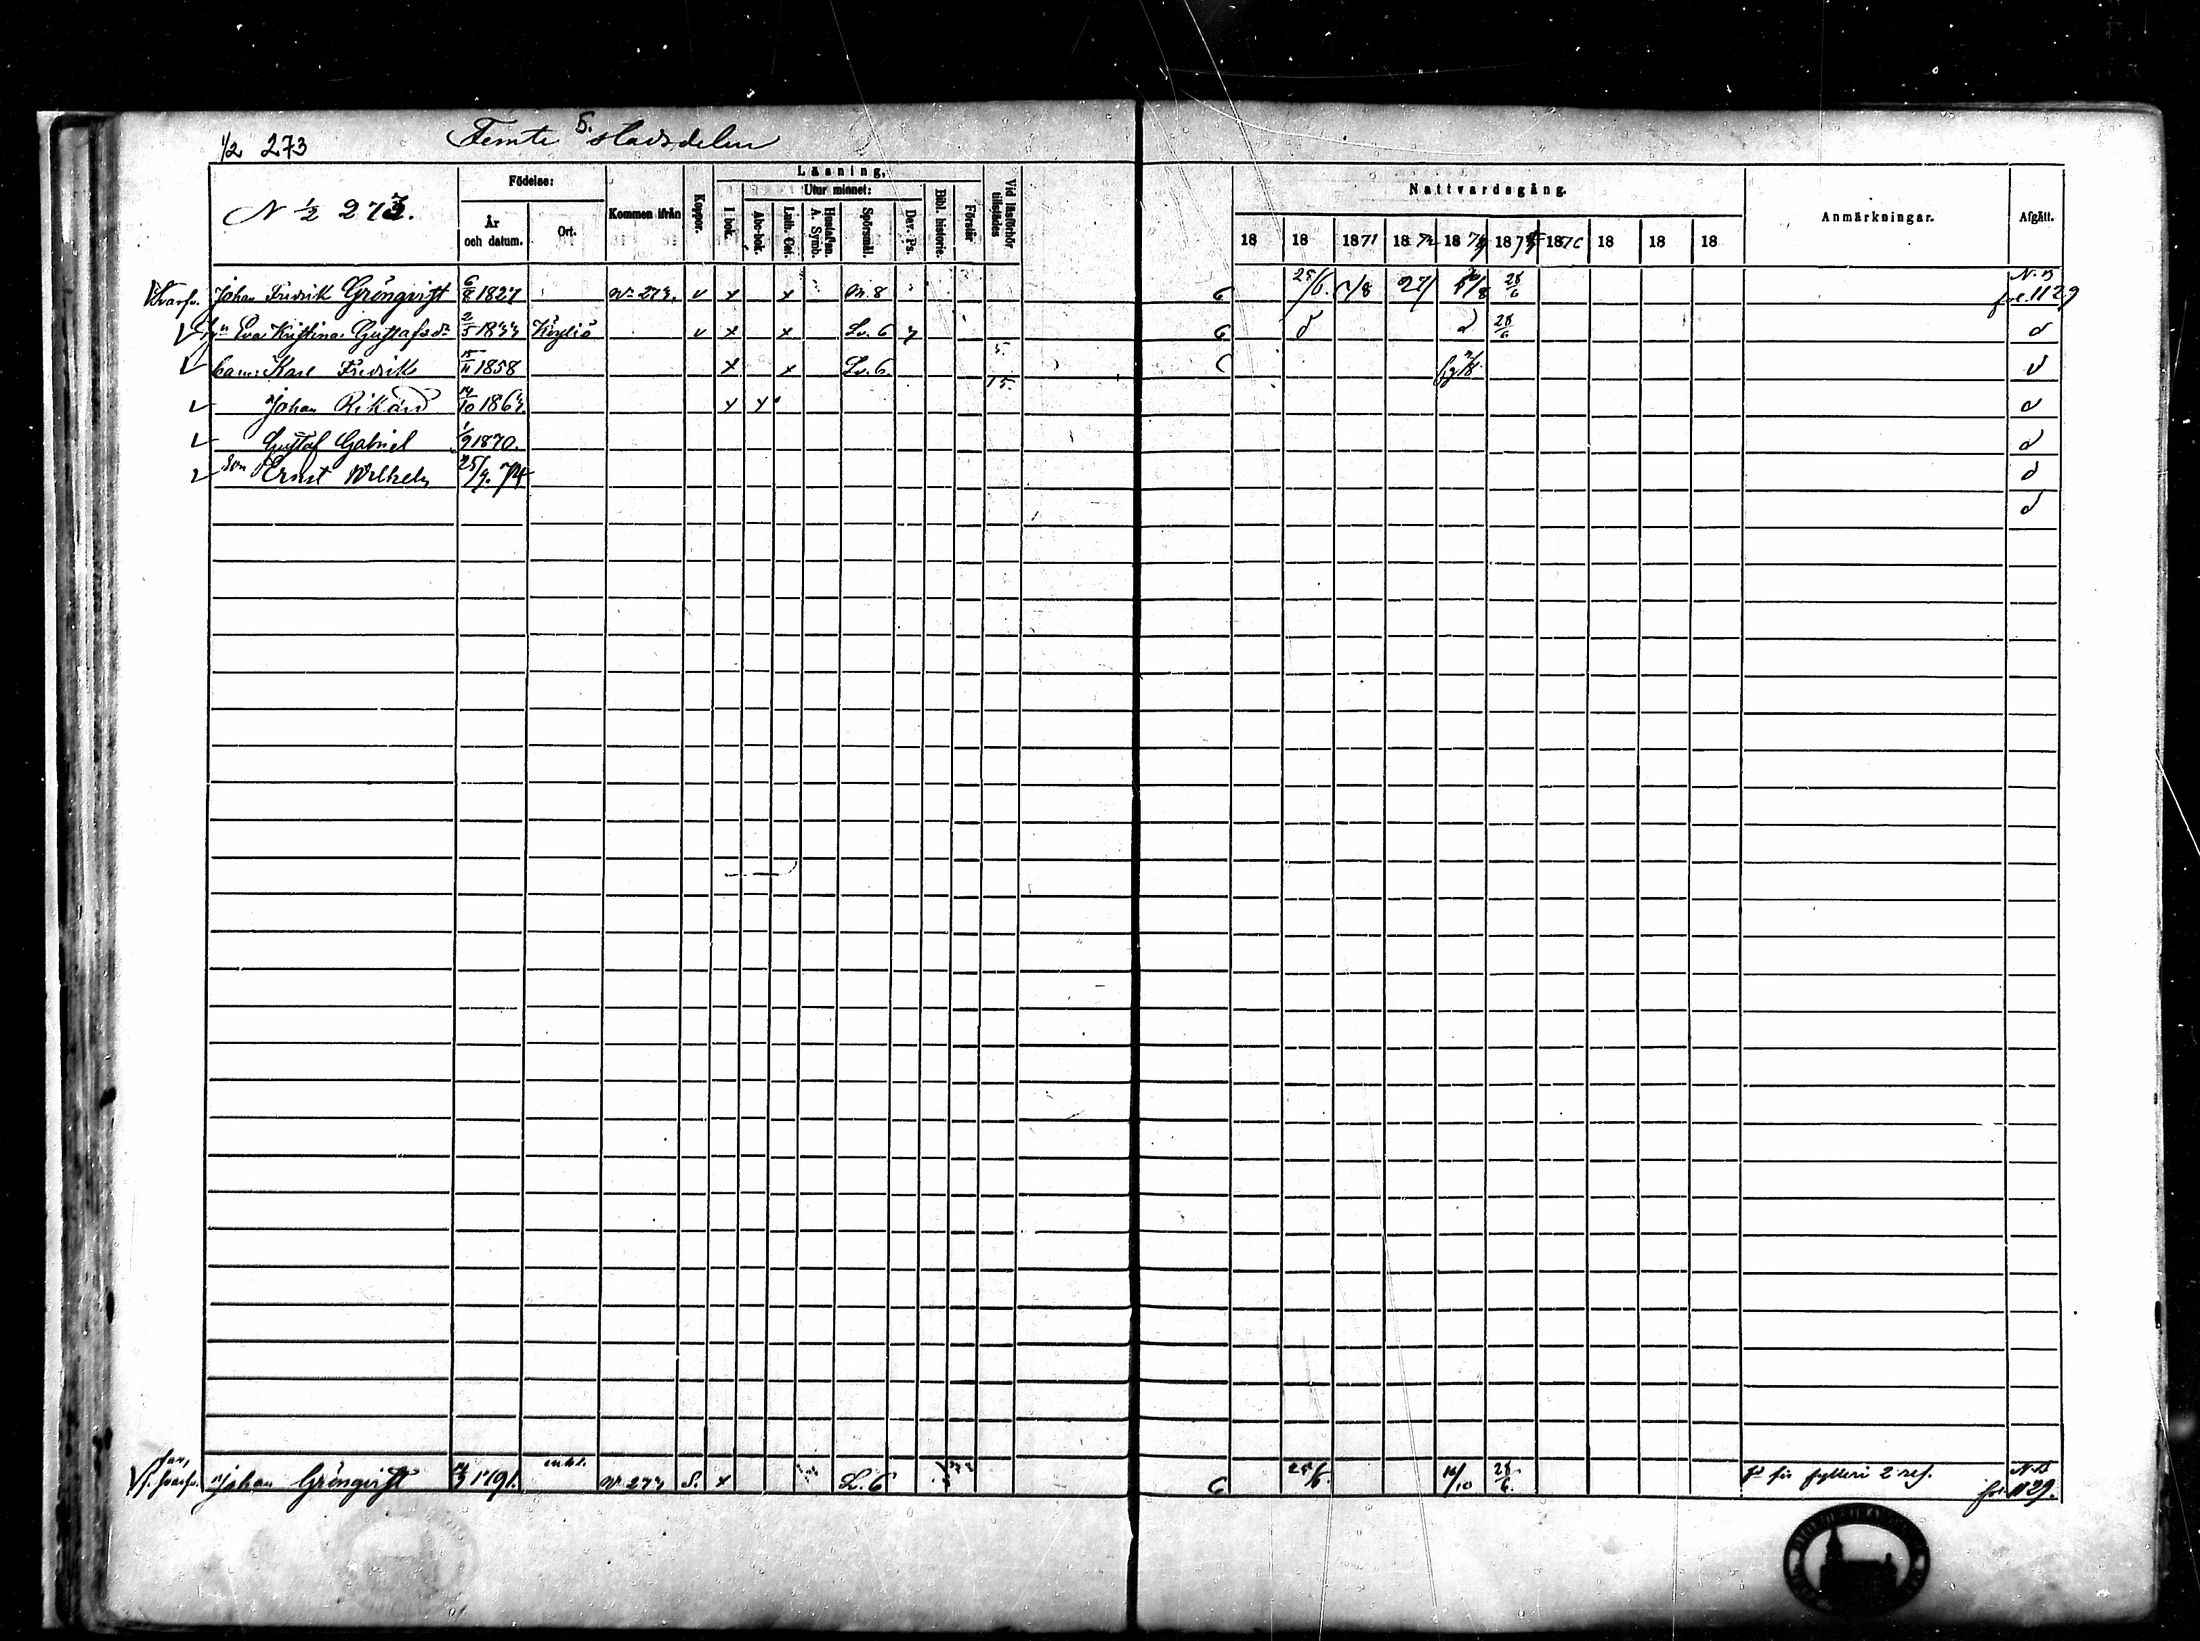 1/2 273 Femte 5. stadsdelen
N 1/2 273.
Födelse:
År och datum.
Ort.
Kommen ifrån
Koppor.
Läsning,
I bok.
Utur minnet:
Abc-bok.
Luth. Cat.
Hustaflan. A. Symb.
Spörsmål.
Dav. Ps.
Bibl. historie.
Förstår
Vid läsförhör tillstädes
Nattvardsgång.
18 18 1871 18 72 18 74 18 75 1876 18 18 18
Anmärkningar.
Afgått.
Svarfv. Johan Fredrik Grönqvist 6/8 1827 Nr 273. v x x 8 6 25/6. 28/6 fol. 1129
Eva Kristina Gustafsdr 2/5 v x x Lv. 6 6 d d 28/6 d
barn: Karl Fredrik 15/11 1858 x x Lv. 6 15. d
Johan Rikard 14/10 x x d
Gustaf Gabriel 1/9 1870. d
son Ernst Wilhelm 25/9. 74 d
d
f. svarfv. Johan Grönqvist 1791. enkl. Nr 273 S. x L. 6 25/6. 28/6. för fylleri 2 res. fol. 1129.